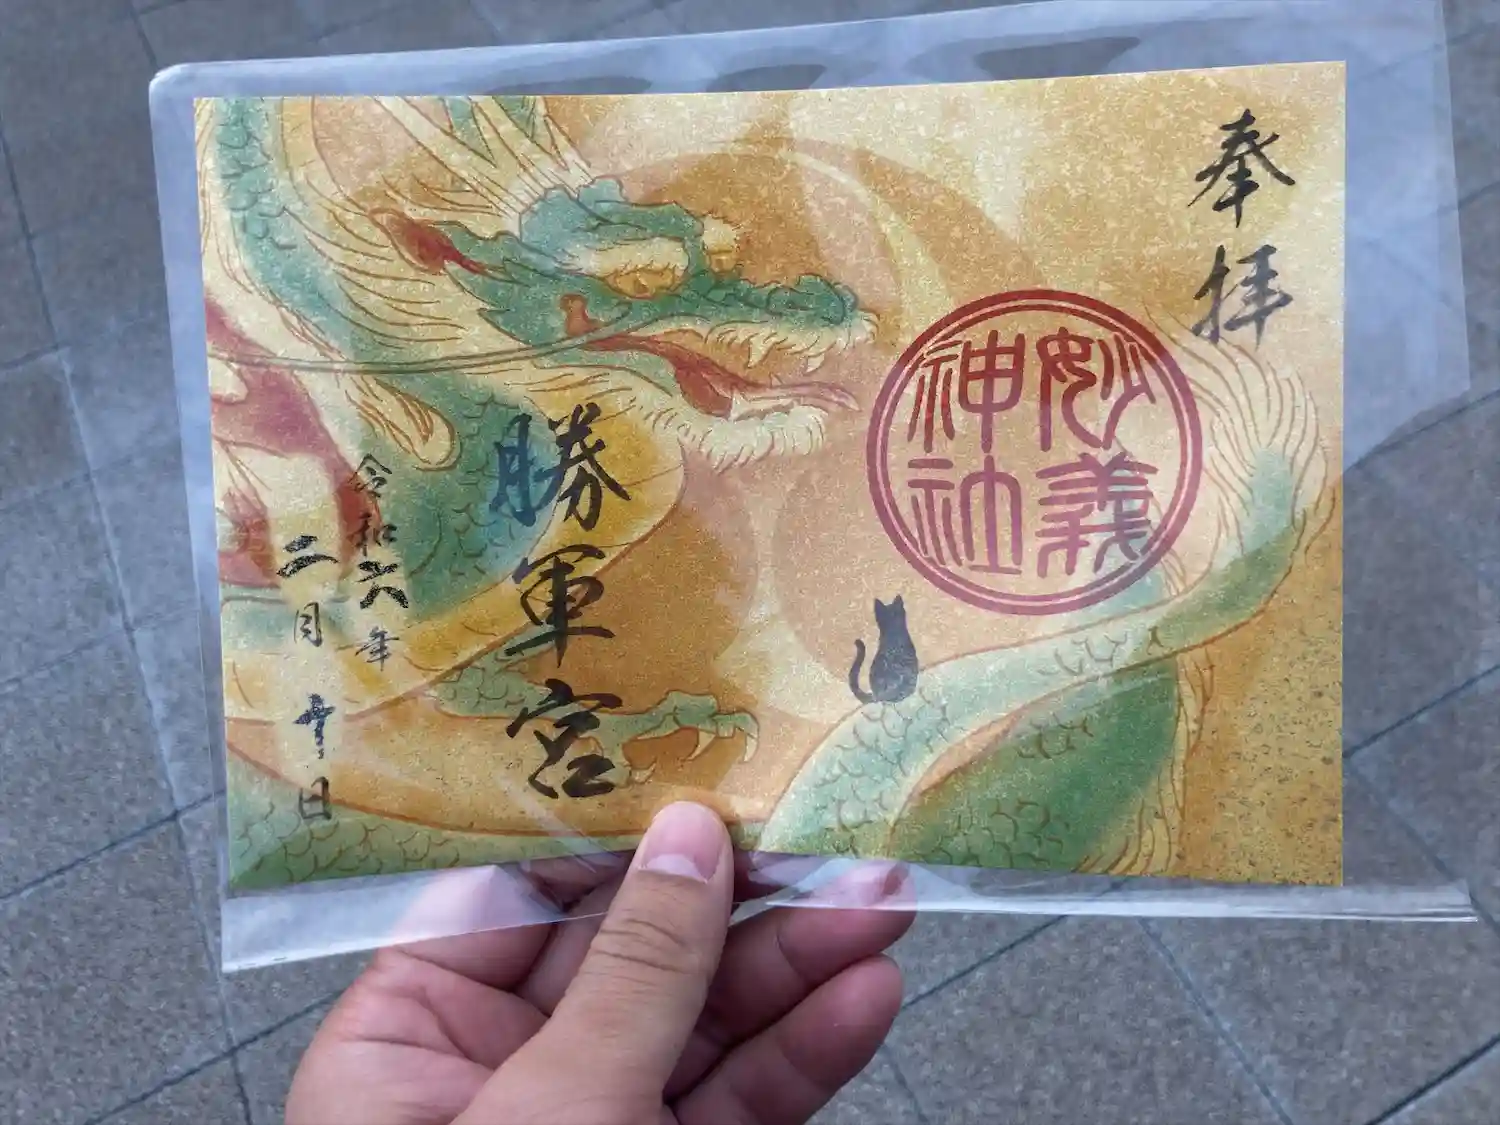 奉拝
妙義
神社
勝軍宮
令和六年
二月 日